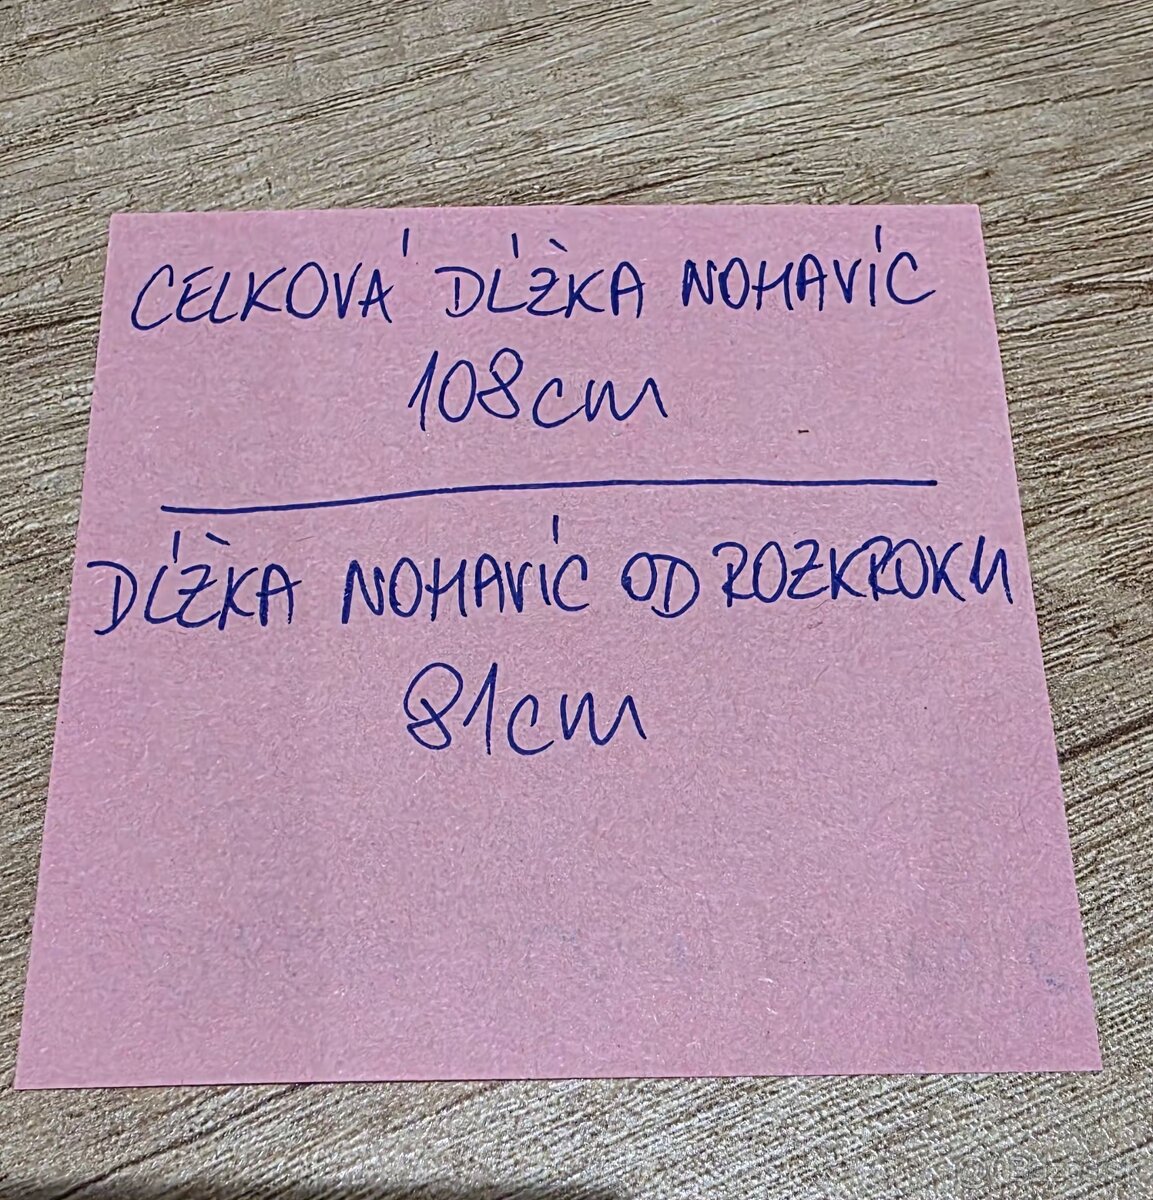 CELKOVÁ DĹŽKA NOHAVÍC
108cm
DĹŽKA NOHAVÍC OD ROZKROKU
81cm